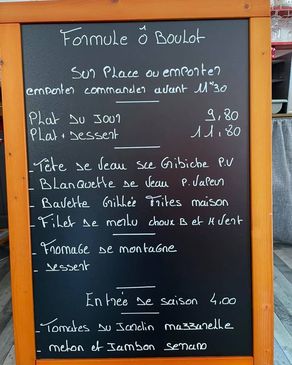 Formule Ô Boulot
Sur Place ou emporter
emporter commander avant 11h30
Plat du Jour 9,80
Plat + Dessert 11,80
- Tête de veau sce Gribiche P.V
- Blanquette de veau P. Vapeur
- Bavette Grillée Frites maison
- Filet de merlu choux B et H. Vert
- Fromage de montagne
- Dessert
Entrée de saison 4,00
- Tomates du Jardin mazzarelle
- melon et Jambon serrano